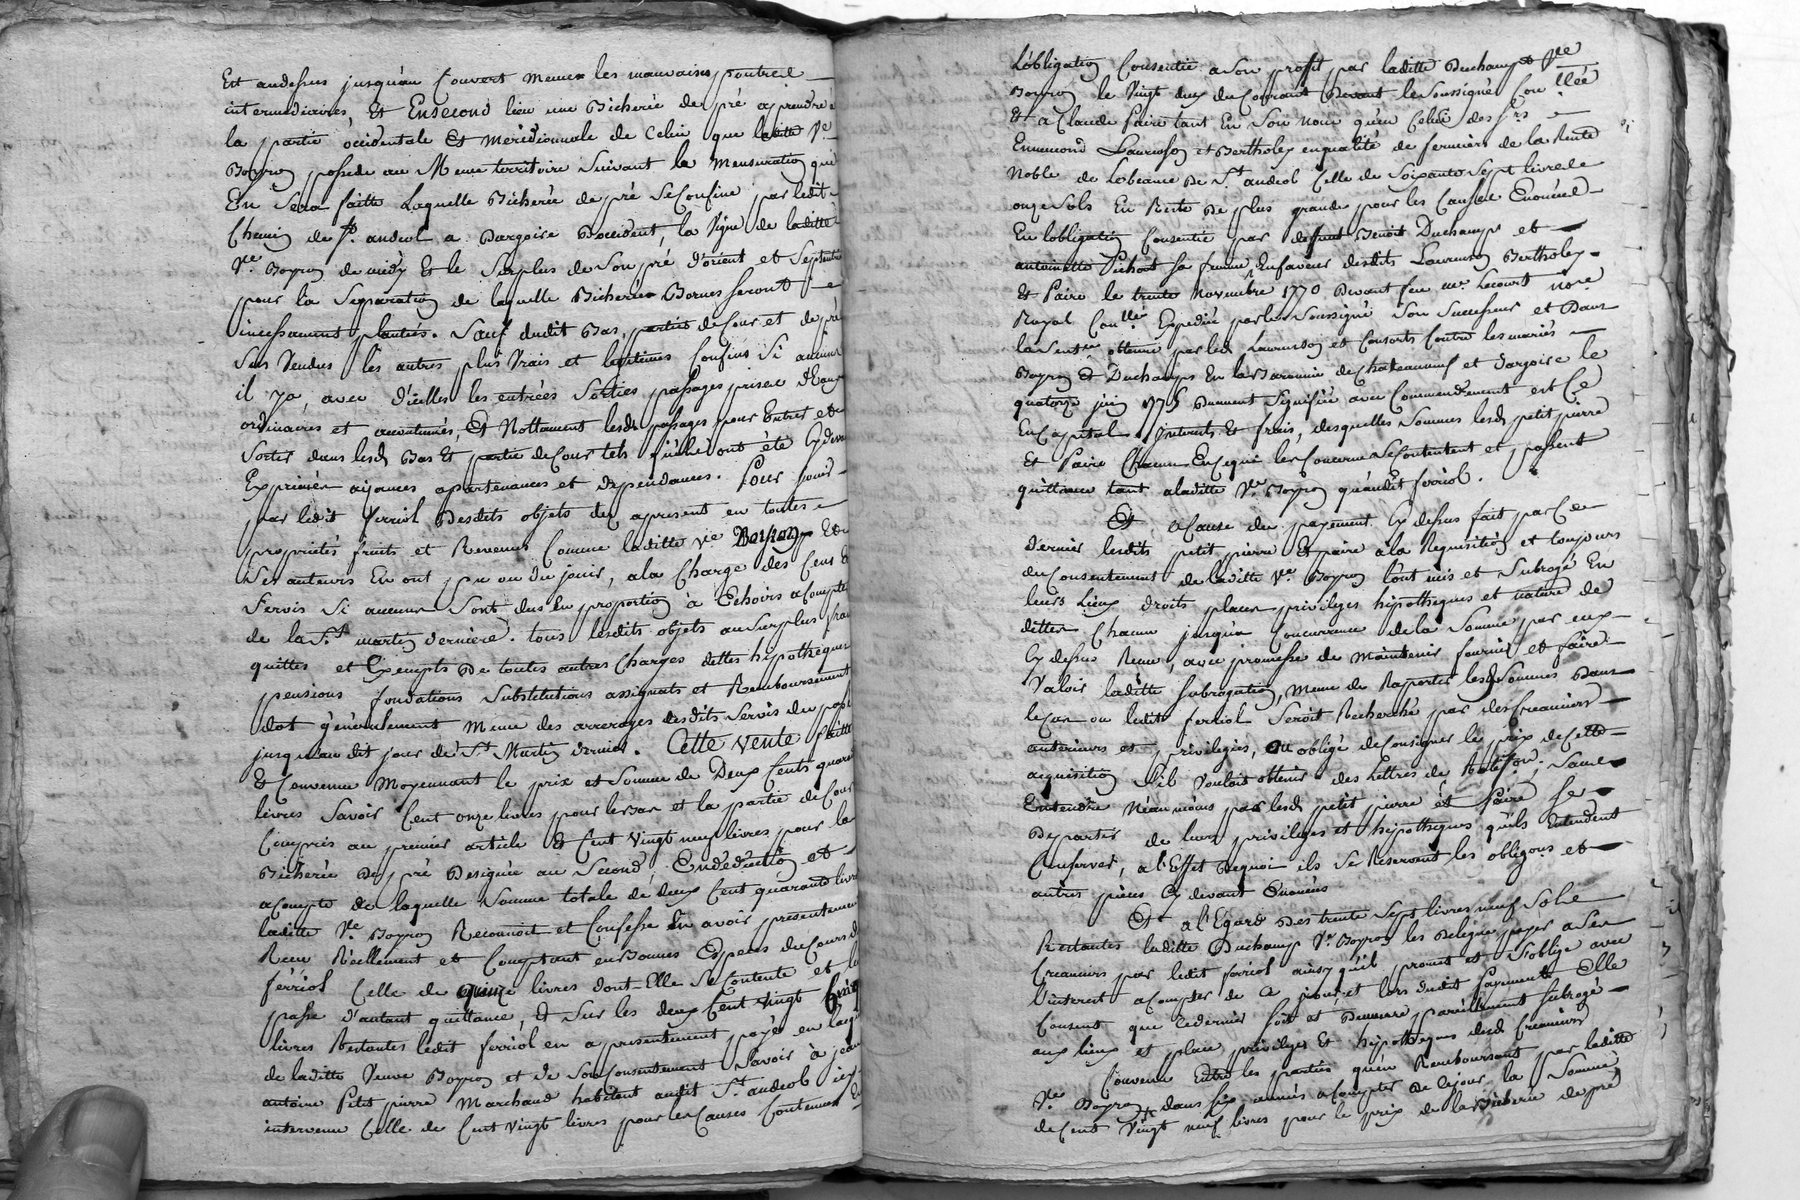 Est audessus jusqu'au Couvert meme les mauvaises poutres
intermediaires, Et Ensecond lieu une Bicherée de pré aprendre a
la partie occidentale Et meridionnale de Celui que laditte Ve
Boyron possede au Meme territoire Suivant la Mensuration qui
En Sera faitte Laquelle Bicherée de pré Se Confine par ledit
Chemin de St andeol a Dargoire D'occident, la Vigne de laditte
Ve Boyron de midy Et le Surplus de Son pré d'orient et Septentri
pour la Separation de laquelle Bicherée Bornes Seront
incessament plantées. Sauf dudit Bas, parties de Cour et de pré
Sus Vendus les autres plus Vrais et legitimes Confins Si aucuns
il y a, avec d'icelles les entrées Sorties passages prises d'Eaux
ordinaires et accoutumés, Et Nottament lesdt passages pour Entrer et
Sortir dans lesdt Bas Et partie de Cour tels qu'ils ont été Cy devant
Exprimés aisances apartenances et dependances. Pour jouir
par ledit Ferriol Desdits objets des apresent en toutes
proprietés fruits et Revenus Comme laditte Ve Boyron Et
Ses auteurs En ont pu ou du jouir, a la Charge des Cens Et
Servis Si aucuns Sont dus En proportion à Echoirs acompter
de la St martin derniere. tous lesdits objets au Surplus francs
quittes et Exempts De toutes autres Charges dettes hipotheques
pensions fondations Substitutions assignats et Remboursement
dot generalement Meme des arrerages desdits Servis du passé
jusqu'au dit jour de St Martin dernier. Cette Vente faitte
Et Convenue Moyennant le prix et Somme de Deux Cents quarante
livres Savoir Cent onze livres pour le Bas et la partie de Cour
Compris au premier article Et Cent Vingt neuf livres pour la
Bicherée De pré Designée au Second. En deduction et
acompte de laquelle Somme totale de deux Cent quarante livres
laditte Ve Boyron Reconnoit et Confesse En avoir presentement
Reçu Réellement et Comptant en Bonnes Especes du Cours dudit
férriol Celle de quinze livres dont Elle Se Contente et la
passe d'autant quittance, Et Sur les deux Cent Vingt Cinq
livres Restantes ledit ferriol en a presentement payé en l'acquit
de laditte Veuve Boyron et de Son Consentement Savoir à jean
antoine Petit pierre Marchand habitant audit St andeol icy
intervenu Celle de Cent Vingt livres pour les Causes Contenues En
L'obligation Consentie a Son profit par laditte Duchamps Ve
Boyron le Vingt deux du Courant Devant le Soussigné Con llée
Et a Claude Paire tant En Son nom qu'en Celui des Srs
Ennemond Laurenson et Bertholey en qualité de fermiers de la Rente
Noble de Lobeaume De St andeol Celle de Soixante Sept livres
onze Sols En Reste De plus grande pour les Causes Enoncées
En lobligation Consentie par defunt Benoit Duchamps et
antoinette Pichat Sa femme Enfaveur desdits Laurenson Bertholey
Et Paire le trente Novembre 1770 Devant feu me Lecourt nore
Royal Conller Expediée par le Soussigné Son Successeur et Dans
la Sentce obtenue par lesd Laurenson et Consorts Contre les mariés
Boyron Et Duchamps En la Baronnie de Chateauneuf et Dargoire le
quatorze juin 1775 Duement Signifiée avec Commendement est Ce
En Capital Interets Et frais, desquelles Sommes lesd petit pierre
Et Paire Chacun En Ce qui les Concerne Se Contentent et passent
quittance tant a laditte Ve Boyron qu'audit ferriol.
Et aCause du payement Cy dessus fait par Ce
dernier lesdits petit pierre Et paire à la Requisition et toujours
du Consentement de laditte Ve Boyron l'ont mis et Subrogé En
leurs Lieux droits places privileges hipotheques et nature de
dettes Chacun jusqu'a Concurrence de la Somme par eux
Cy dessus Reçue, avec promesse de maintenir fournir et faire
Valoir laditte Subrogation, meme de Raporter lesd Sommes Dans
le Cas ou ledit ferriol Seroit Recherché par des Creanciers
anterieurs et privilegiés, ou obligé de Consigner le prix de Cette
acquisition S'il Vouloit obtenir des Lettres de Ratifon. Sans
Entendre Néanmoins par lesd petit pierre et Paire Se
Departir de leurs privileges et hipotheques qu'ils Entendent
Conserver, a l'Effet Dequoi ils Se Reservent les obligons et
autres pieces Cy devant Enoncées
Et a l'Egard Des trente Sept livres neuf Sols
Restantes laditte Duchamp Ve Boyron les Delegue payer a Ses
Creanciers par ledit ferriol ainsy qu'il promet et S'oblige avec
L'interest acompter de Ce jour et lors dudit Payement Elle
Consent que Ce dernier Soit et Demeure pareillement Subrogé
aux lieux et place privileges Et hipotheques desd Creanciers
Convenu Entre les parties qu'en Remboursant par laditte
Ve Boyron dans Six années acompter De Ce jour la Somme
de Cent Vingt neuf livres pour le prix de la Bicherée de pré